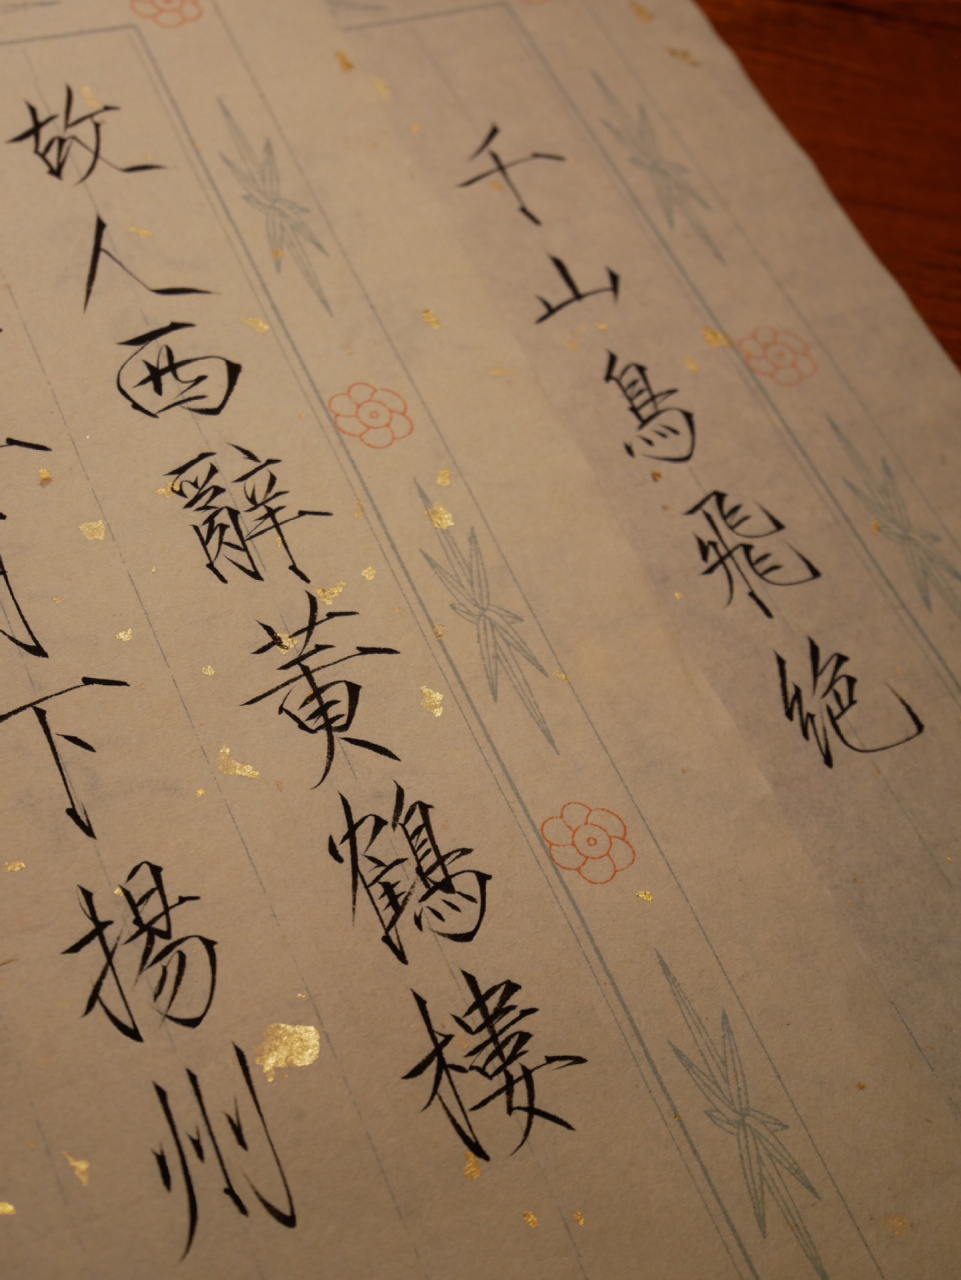 千山鳥飛絶
故人西辭黃鶴樓
下揚州